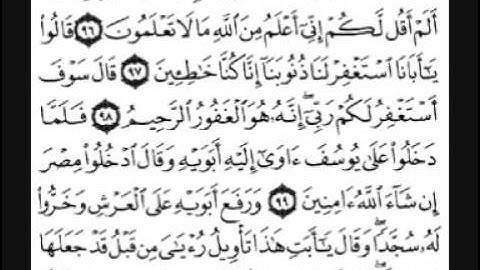 أَلَمْ أَقُل لَّكُمْ إِنِّىٓ أَعْلَمُ مِنَ ٱللَّهِ مَا لَا تَعْلَمُونَ ٩٦ قَالُوا۟
يَـٰٓأَبَانَا ٱسْتَغْفِرْ لَنَا ذُنُوبَنَآ إِنَّا كُنَّا خَـٰطِـِٔينَ ٩٧ قَالَ سَوْفَ
أَسْتَغْفِرُ لَكُمْ رَبِّىٓ ۖ إِنَّهُۥ هُوَ ٱلْغَفُورُ ٱلرَّحِيمُ ٩٨ فَلَمَّا
دَخَلُوا۟ عَلَىٰ يُوسُفَ ءَاوَىٰٓ إِلَيْهِ أَبَوَيْهِ وَقَالَ ٱدْخُلُوا۟ مِصْرَ
إِن شَآءَ ٱللَّهُ ءَامِنِينَ ٩٩ وَرَفَعَ أَبَوَيْهِ عَلَى ٱلْعَرْشِ وَخَرُّوا۟
لَهُۥ سُجَّدًا ۖ وَقَالَ يَـٰٓأَبَتِ هَـٰذَا تَأْوِيلُ رُءْيَـٰىَ مِن قَبْلُ قَدْ جَعَلَهَا